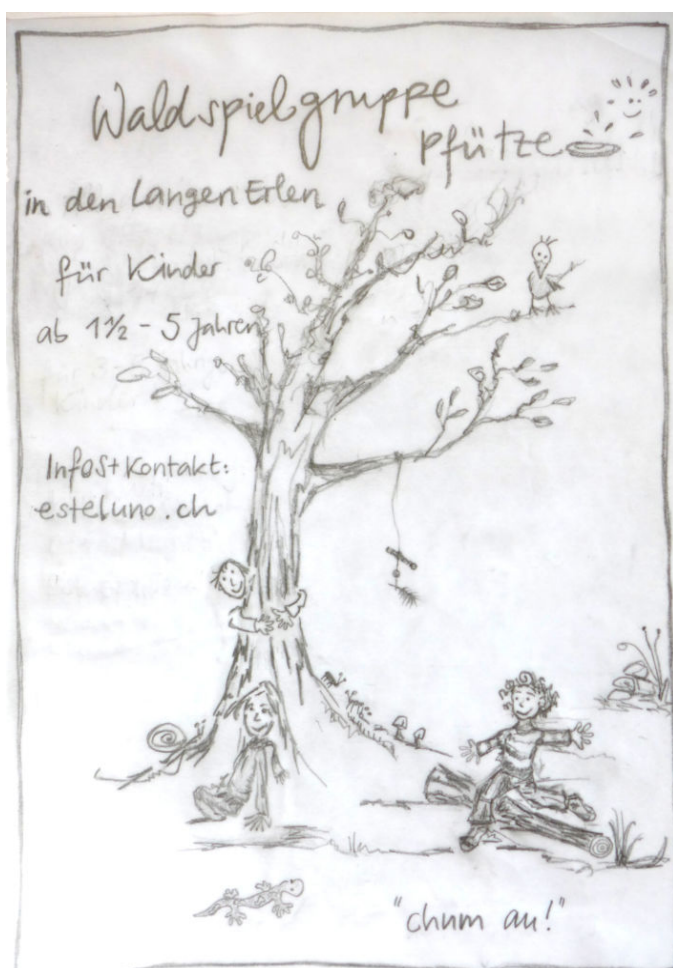 Waldspielgruppe
Pfütze
in den Langen Erlen
für Kinder
ab 1½ - 5 Jahren
Infos+Kontakt:
esteluno.ch
"chum au!"